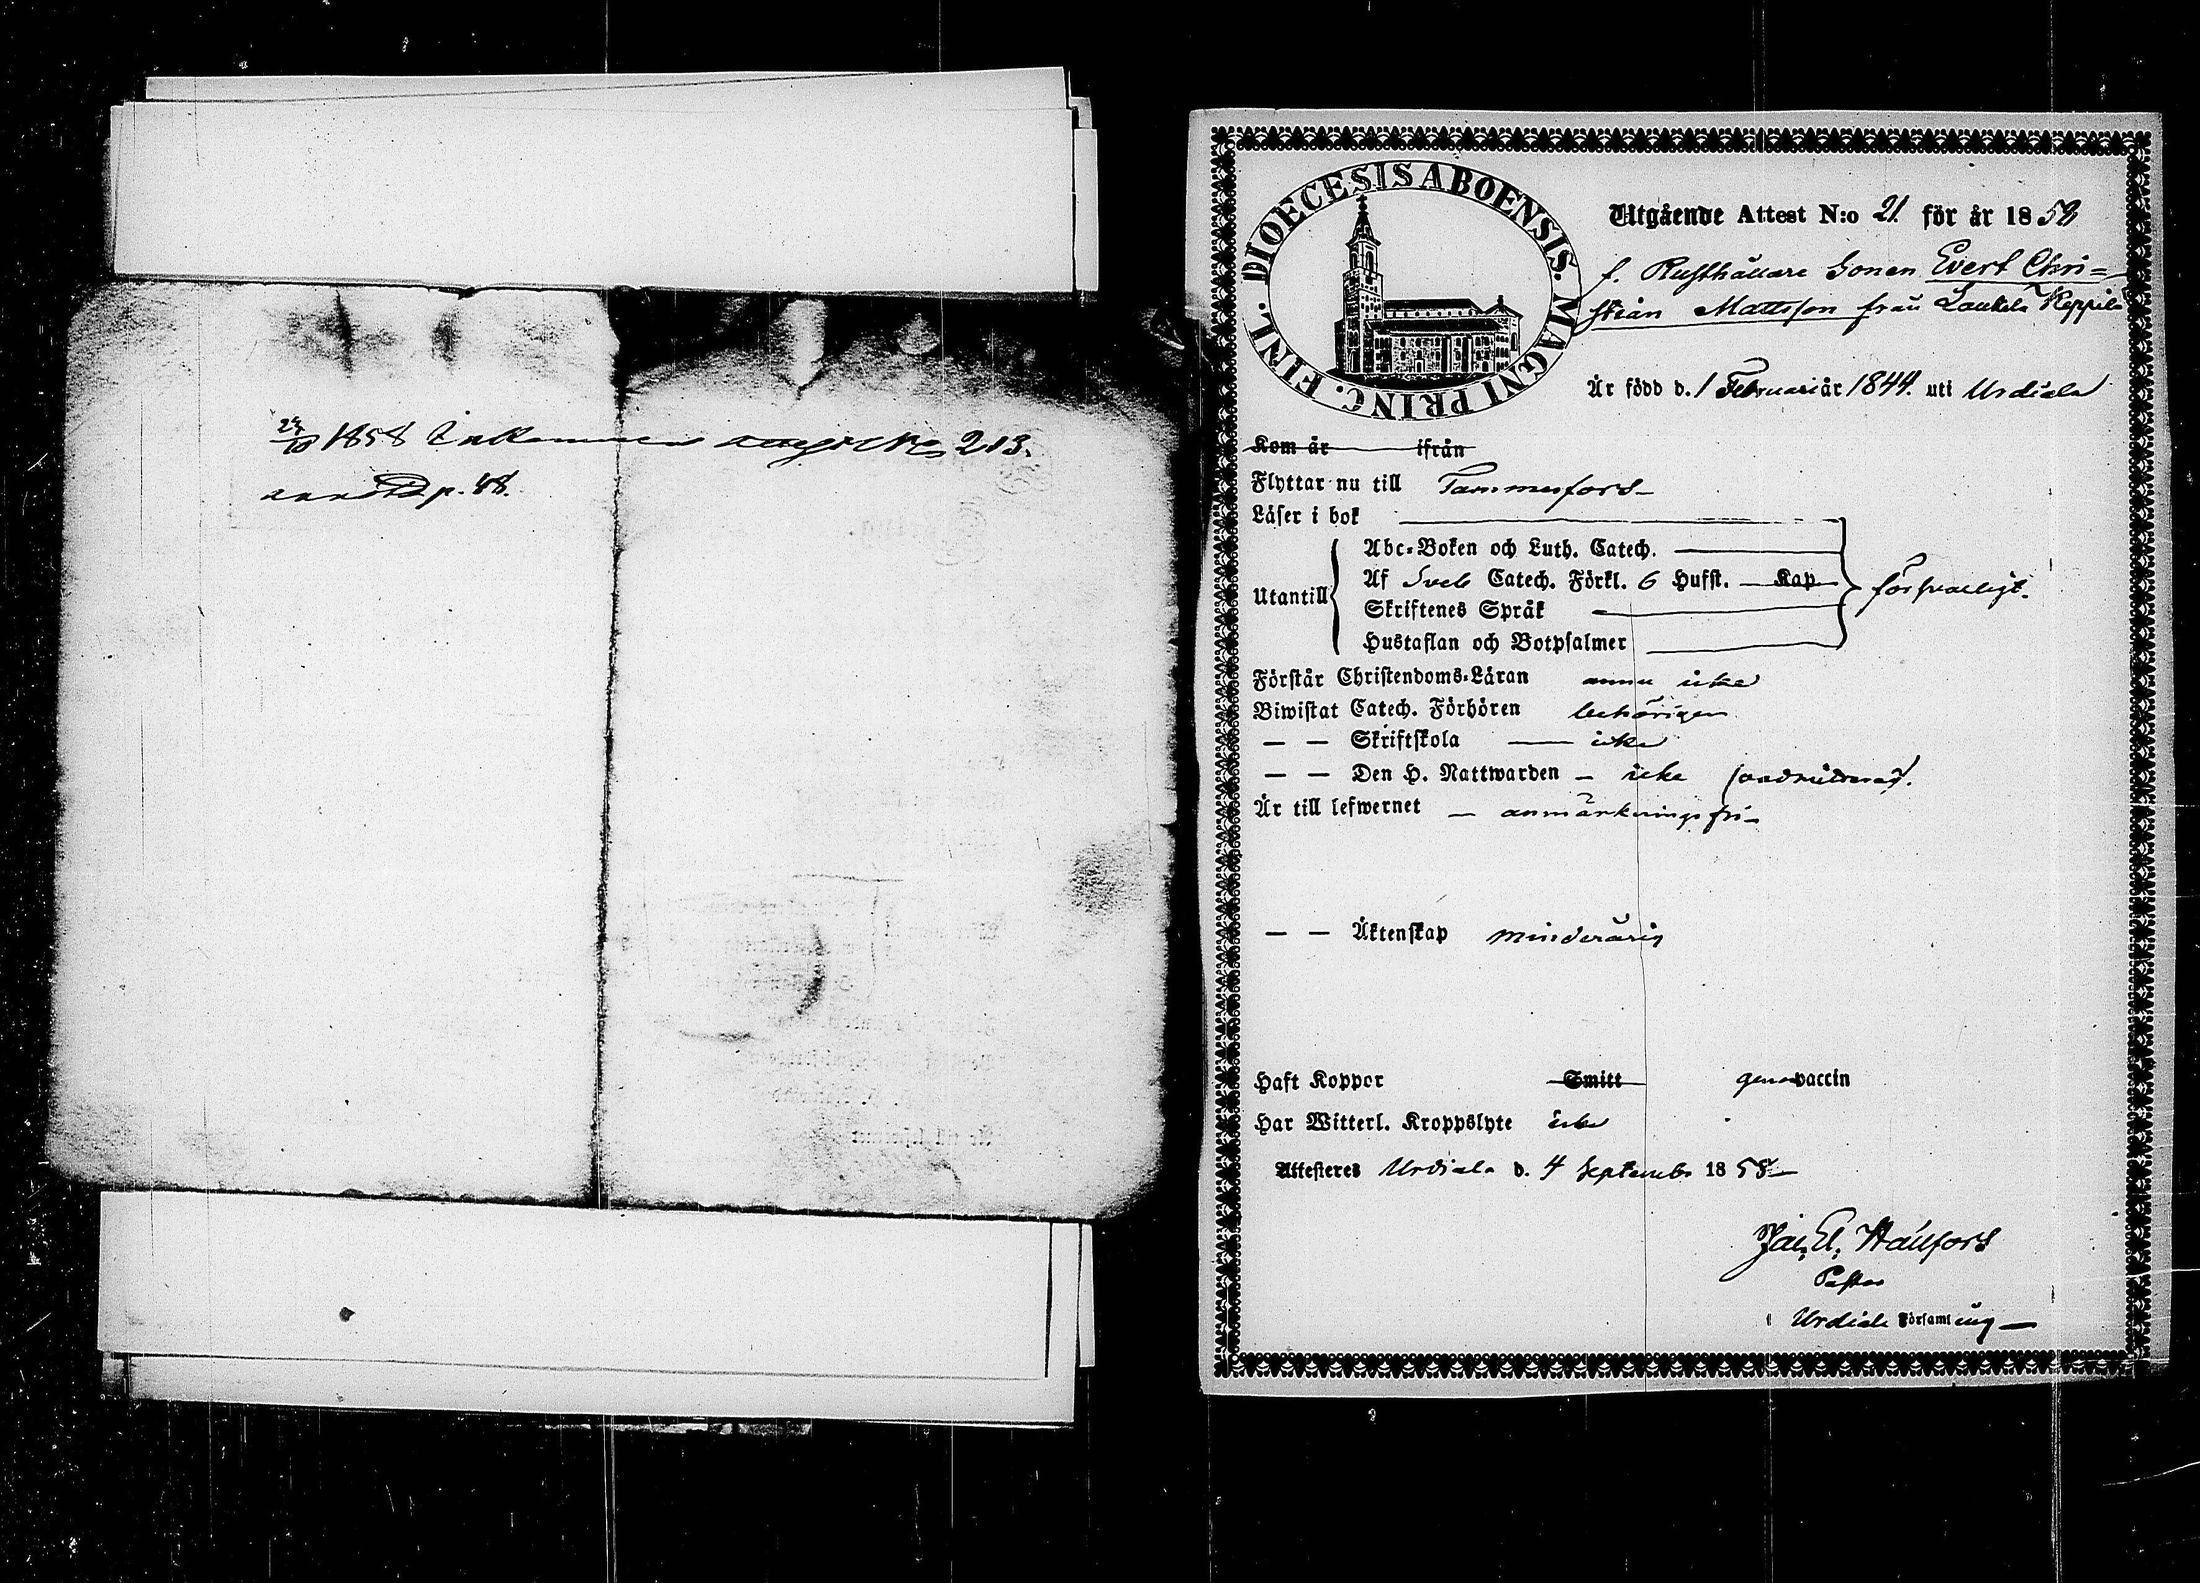 1858 Inkommen attest No 213.
p. 48.
DIOECESIS ABOENSIS. MAGNI PRINC. FINL.
Utgående Attest N:o 21 för år 1858
f. Rusthållare Sonen Evert Chri=
stian Mattsson från Laukela Keppilä
Är född d. 1 Februari år 1844. uti Urdiala
Kom år ifrån
Flyttar nu till Tammerfors
Läser i bok
Abc-Boken och Luth. Catech.
Utantill
Af Sveb Catech. Förkl. 6 Hufst. Kap
försvarligt.
Skriftenes Språk
Hustaflan och Botpsalmer
Förstår Christendoms-Läran ännu icke
Biwistat Catech. Förhören behörigen
— — Skriftskola — icke
— — Den H. Nattwarden – icke
Är till lefwernet — anmärkningsfri
— — Äktenskap minderårig
Haft Koppor Smitt genom vaccin
Har Witterl. Kroppslyte icke
Attesteres Urdiala d. 4 September 1858
Hällfors
Pastor
i Urdiala Församling